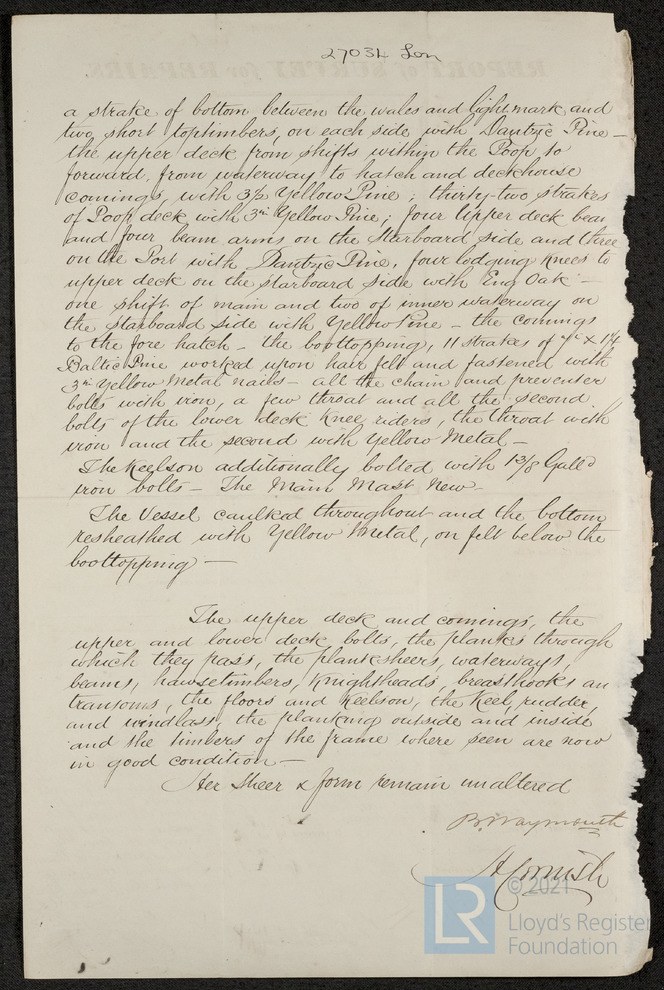 27034 Lon
a strake of bottom between the wales and light mark, and
two short toptimbers, on each side with Dantzic Pine –
the upper deck from shifts within the Poop to
forward, from waterway to hatch and deckhouse
comings, with 3½ Yellow Pine; thirty-two strakes
of Poop deck with 3in Yellow Pine; four Upper deck beam
and four beam arms on the Starboard side and three
on the Port with Dantzic Pine, four lodging knees to
upper deck on the starboard side with Eng Oak –
one shift of main and two of inner waterway on
the starboard side with Yellow Pine – the comings
to the fore hatch – the boottopping, 11 strakes of
Baltic Pine worked upon hair felt and fastened with
3in Yellow Metal nails – all the chain and preventer
bolts with iron, a few throat and all the second
bolts of the lower deck Knee riders, the throat with
iron and the second with Yellow Metal –
The Keelson additionally bolted with 1 3/8 Galld
iron bolts – The Main Mast New –
The Vessel caulked throughout and the bottom
resheathed with Yellow Metal, on felt below the
boottopping –
The upper deck and comings, the
upper and lower deck bolts, the planks through
which they pass, the planksheers, waterways,
beams, hawsetimbers, Knightheads, breasthooks an
transoms, the floors and Keelson, the Keel, rudder,
and windlass, the planking outside and inside
and the timbers of the frame where seen are now
in good condition –
Her Sheer & form remain unaltered
B. Waymouth
A Cornish
LR © 2021
Lloyd's Register
Foundation
REPORT of SURVEY for REPAIRS.